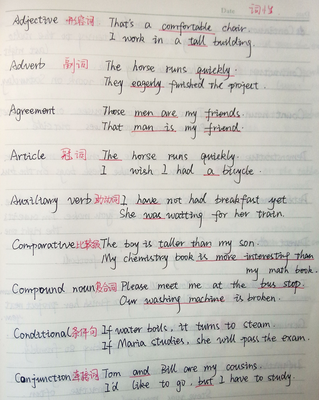 词性
Adjective 形容词 That's a comfortable chair.
I work in a tall building.
Adverb 副词 The horse runs quickly.
They eagerly finished the project.
Agreement Those men are my friends.
That man is my friend.
Article 冠词 The horse runs quickly.
I wish I had a bicycle.
Auxiliary verb 助动词 I have not had breakfast yet
She was waiting for her train.
Comparative 比较级 The boy is taller than my son.
My chemistry book is more interesting than
my math book.
Compound noun 复合词 Please meet me at the bus stop.
Our washing machine is broken.
Conditional 条件句 If water boils, it turns to steam.
If Maria studies, she will pass the exam.
Conjunction 连接词 Tom and Bill are my cousins.
I'd like to go, but I have to study.